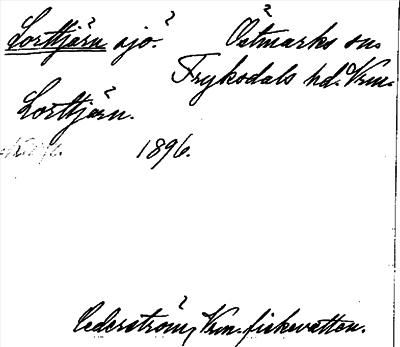 Lorttjärn sjö. Östmarks sn.
Fryksdals hd. Vrm.
Lorttjärn.
1896.
Cederström, Vrm. fiskevatten.